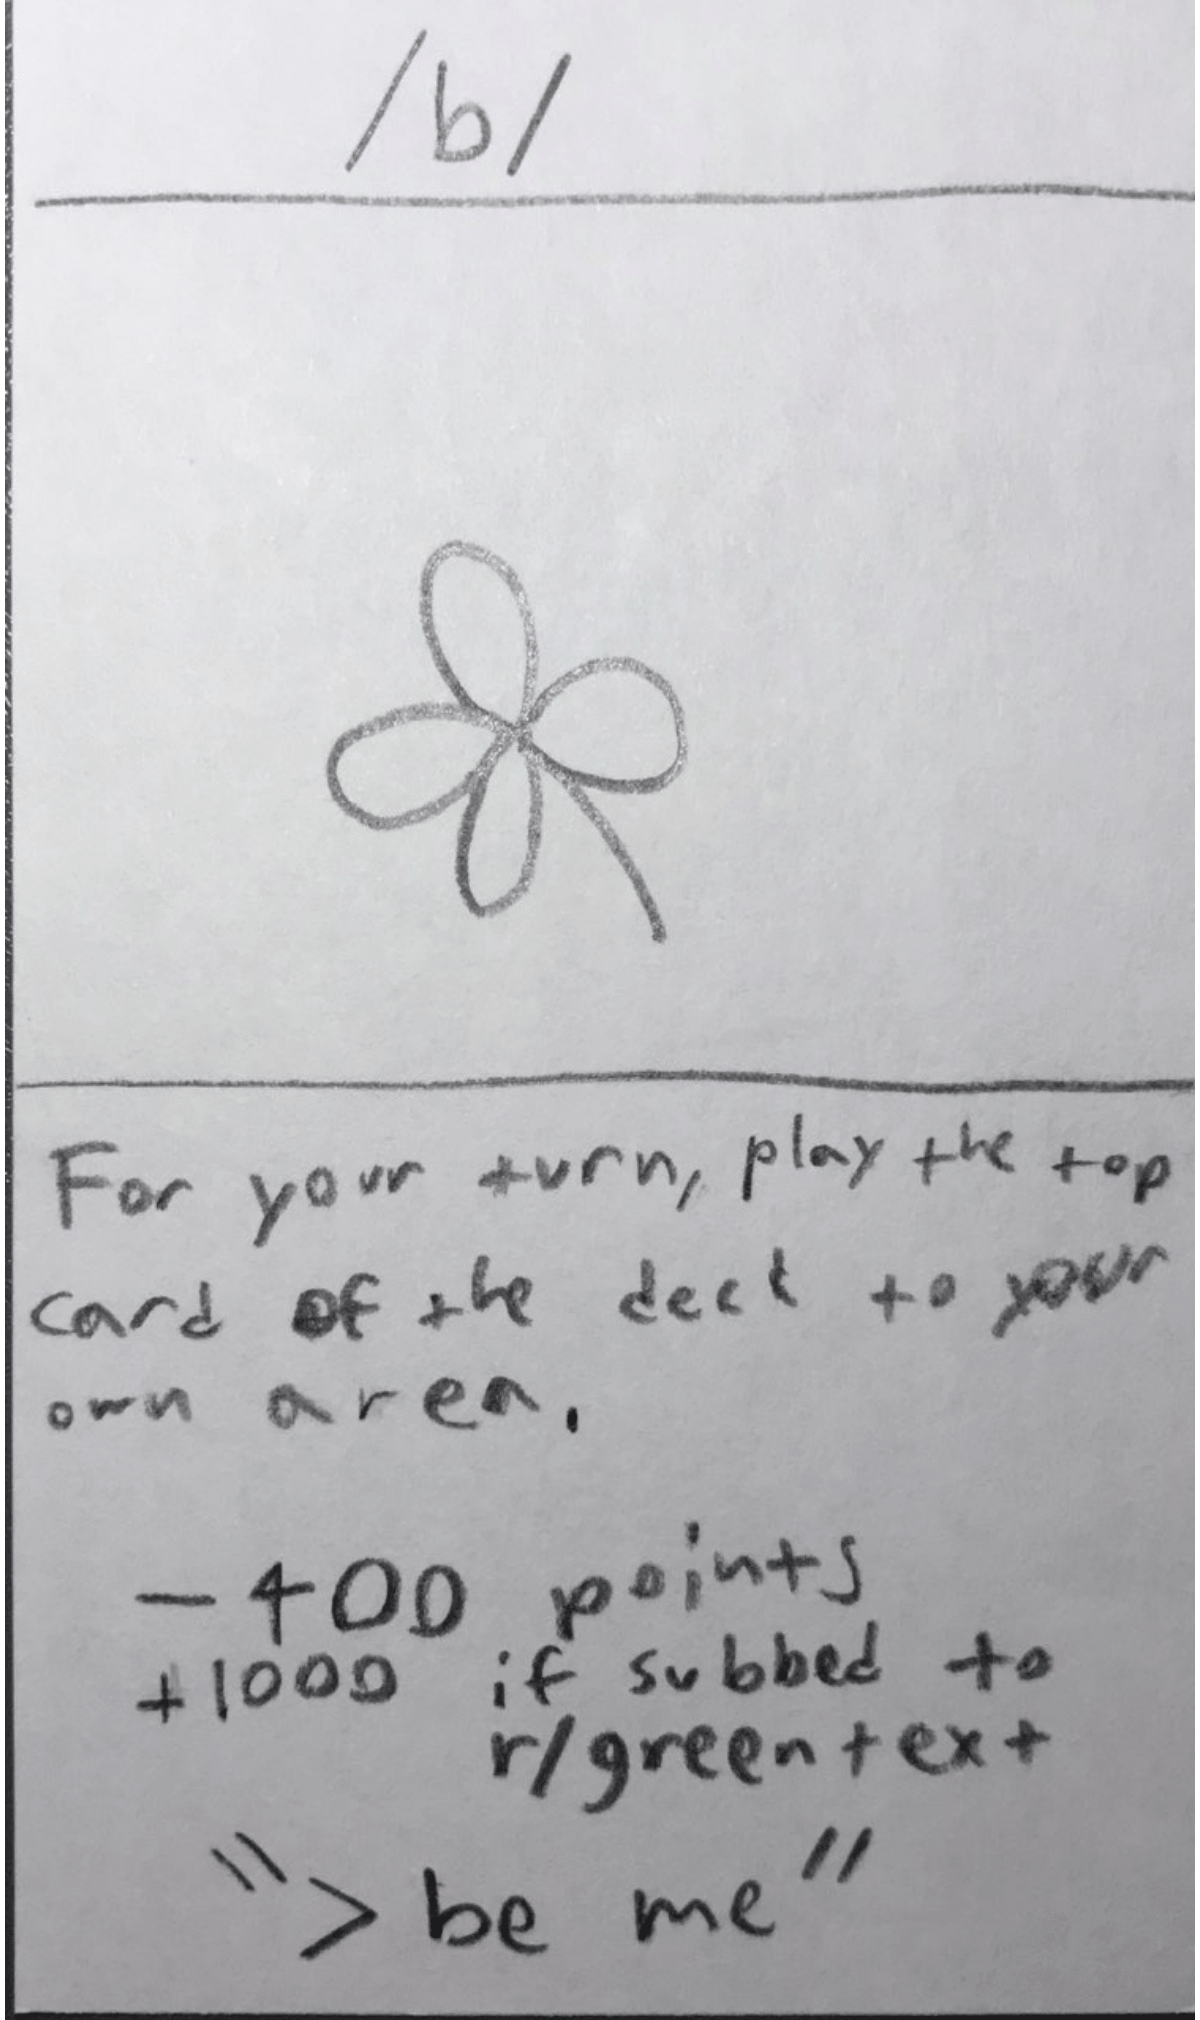 /b/
For your turn, play the top
card of the deck to your
own area.
-400 points
+1000 if subbed to
r/greentext
">be me"